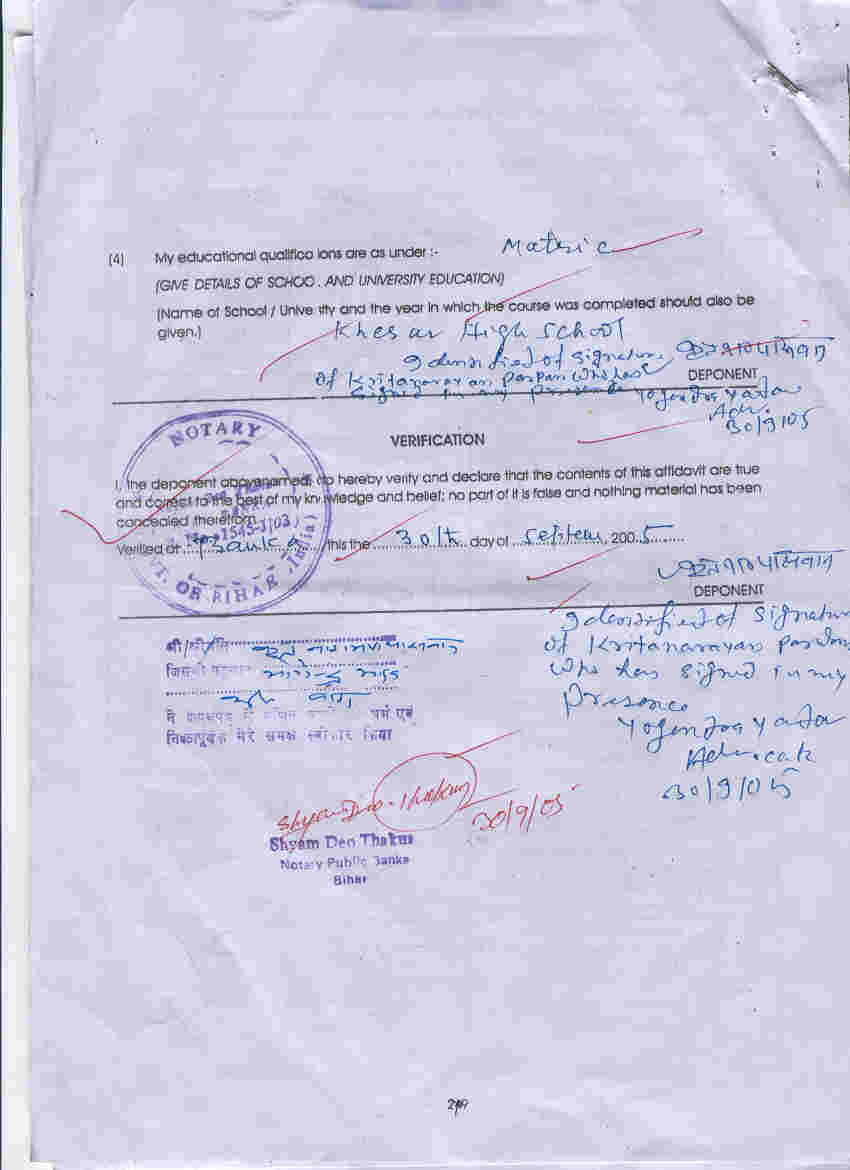 (4) My educational qualifica ions are as under :- Matric
(GIVE DETAILS OF SCHOO . AND UNIVERSITY EDUCATION)
(Name of School / Unive sity and the year in which the course was completed should also be
given.) Khesar High School
Idensified of signature
of Kritanarayan Paswan who has DEPONENT
signed in my presence Yogendra Yadav
Adv.
30/9/05
NOTARY
VERIFICATION
I, the deponent abovenamed, do hereby verify and declare that the contents of this affidavit are true
and correct to the best of my knowledge and belief; no part of it is false and nothing material has been
concealed therefrom.
Verified at Banka this the 30th day of Septem, 2005
GOVT. OF BIHAR (India)
DEPONENT
Idensified of signature
of Kritanarayan Paswan
who has signed in my
presence
Yogendra Yadav
Advocate
30/9/05
श्री/श्रीमति
जिसकी पहचान
ने शपथपत्र में
निष्ठापूर्वक मेरे समक्ष स्वीकार किया
Shyam Deo Thakur 30/9/05
Shyam Deo Thakur
Notary Public Banka
Bihar